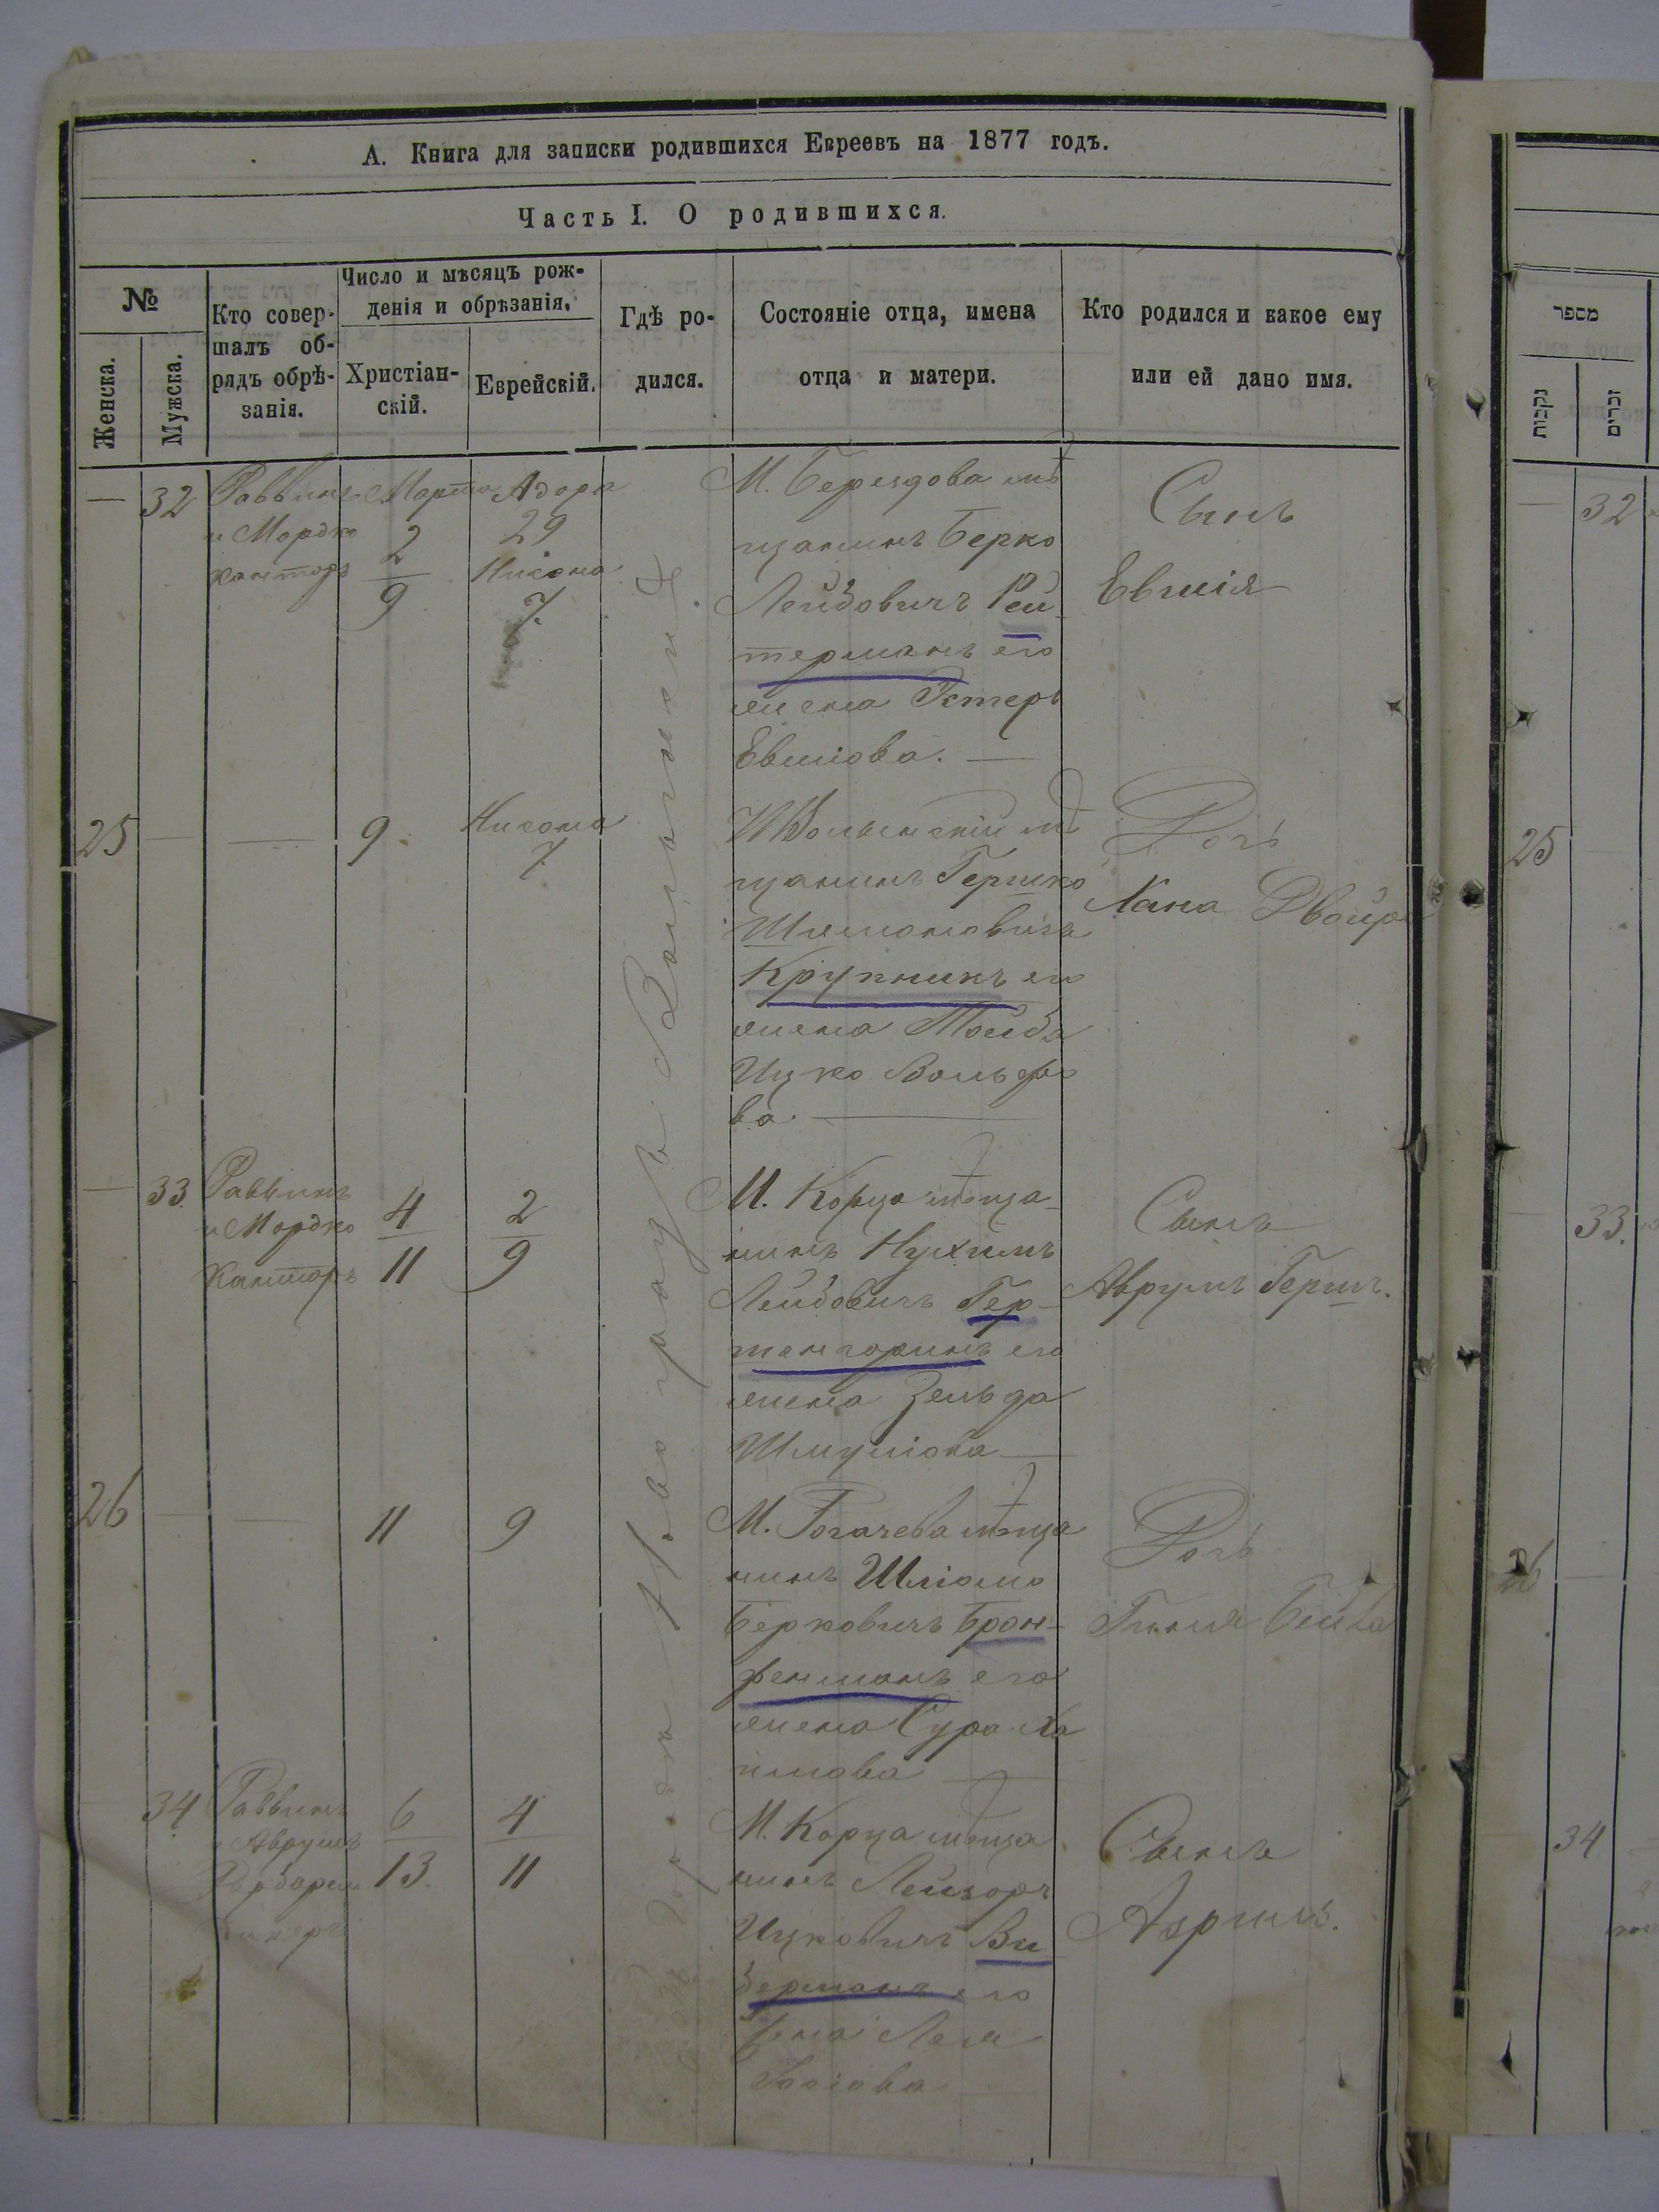 А. Книга для записки родившихся Евреевъ на 1877 годъ.
Часть I. О родившихся.
№
Женска.
Мужска.
Кто совер-
шалъ об-
рядъ обрѣ-
занія.
Число и мѣсяцъ рож-
денія и обрѣзанія.
Христіан-
скій.
Еврейскій.
Гдѣ ро-
дился.
Состояніе отца, имена
отца и матери.
Кто родился и какое ему
или ей дано имя.
— 32
Раввинъ
и Мордко
Канторъ
Марта
2
9
Адора
29
Нисона
7.
М. Берездова мѣ
щанинъ Берко
Лейбовичъ Рей
терманъ его
жена Эстеръ
Евшіова. —
Сынъ
Евшія
25 — —
9.
Нисона
7
Н Волынскій мѣ
щанинъ Гершко
Шлемоновичъ
Крупникъ его
жена Тойба
Ицко Вольфо
ва. —
Дочь
Хана Двойра
— 33.
Раввинъ
и Мордко
Канторъ
4
11
2
9
М. Корца мѣща-
нинъ Нухимъ
Лейбовичъ Гер-
тенгоринъ его
жена Зельда
Шмуліова —
Сынъ
Аврумъ Герш.
26 — —
11
9
М. Рогачева мѣща
нинъ Шліомо
Берковичъ Брон-
фенманъ его
жена Сура Ха
имова —
Дочь
Гинля Бейла
34
Раввинъ
и Аврумъ
6
13.
4
11
М. Корца мѣща
нинъ Лейзоръ
Ицковичъ Ви
берманъ его
жена Лея
—
Сынъ
въ городѣ Новоградъ Волынскѣ
מספר
נקבות
זכרים
— 32
25
33.
26
34